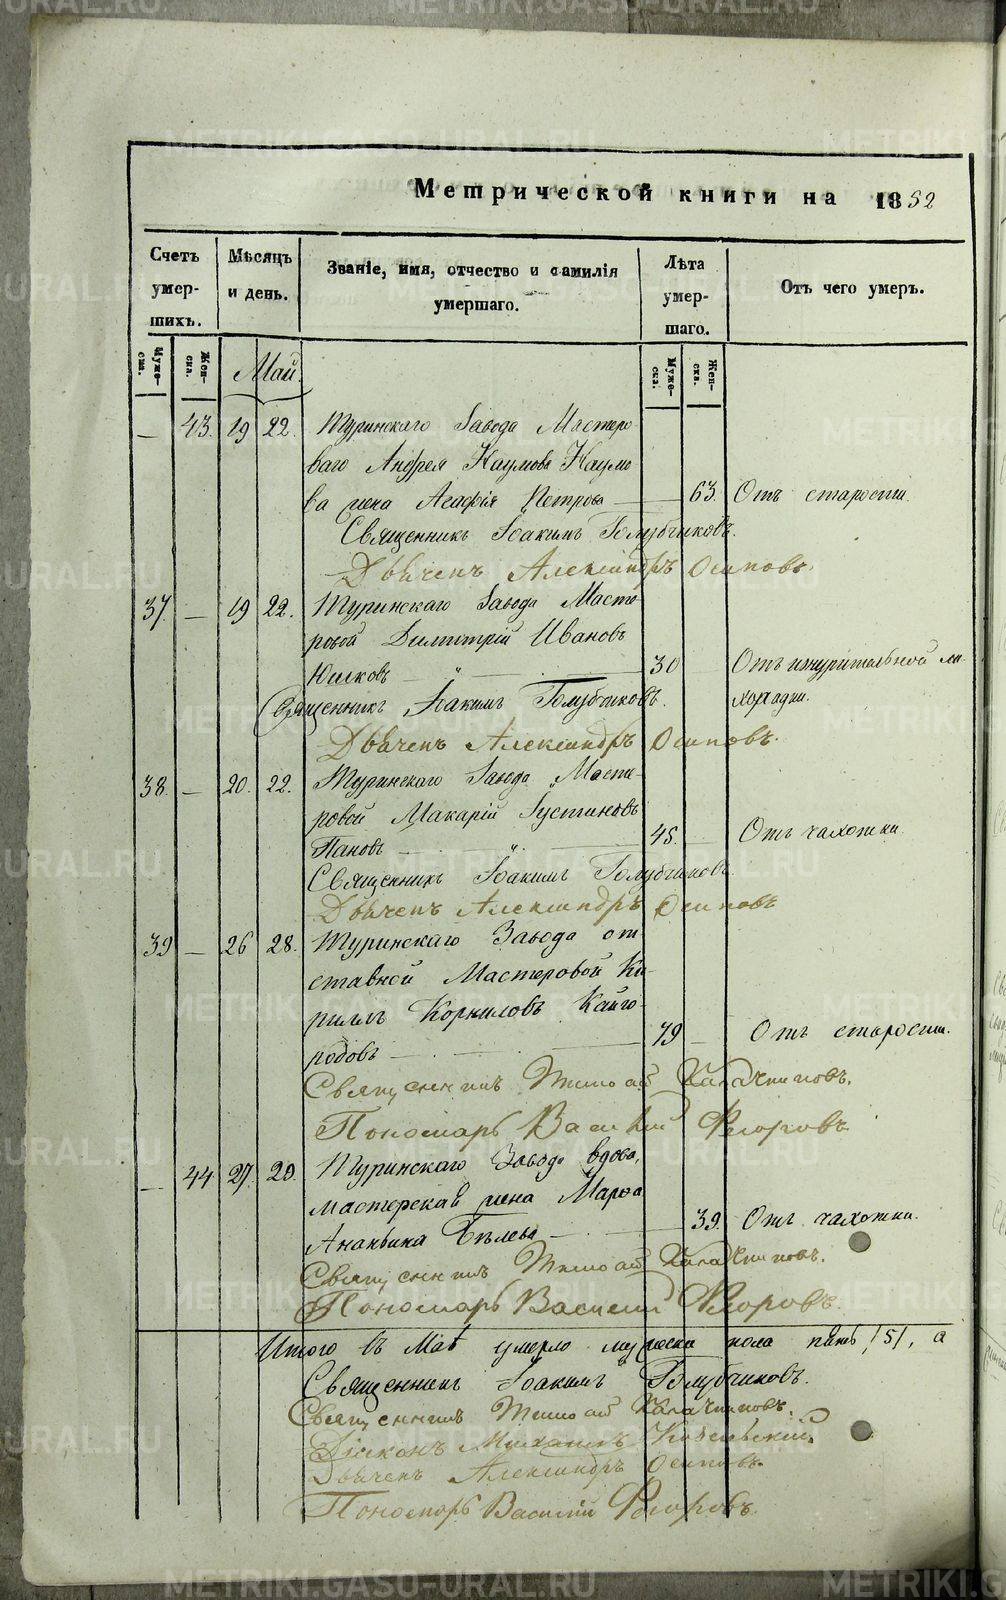 Метрической книги на 1852
Счетъ умершихъ.
Мѣсяцъ и день.
Званіе, имя, отчество и фамилія умершаго.
Лѣта умершаго.
Отъ чего умеръ.
Муже- ска.
Жен- ска.
Май.
Муже- ска.
Жен- ска.
— 43. 19 22. Туринскаго Завода Мастеро-
ваго Андрея Наумова Наумо
ва жена Агафія Петрова — 63. Отъ старости
Священникъ Іоакимъ Голубчиковъ.
Дьячекъ Александръ Осиповъ.
37. — 19 22. Туринскаго Завода Масте-
ровой Димитрій Ивановъ
Юшковъ — 30 Отъ изнурительной ли-
хорадки.
Священникъ Іоакимъ Голубчиковъ.
Дьячекъ Александръ Осиповъ.
38. — 20. 22. Туринскаго Завода Масте-
ровой Макарій Іустиновъ
Пановъ — 45. Отъ чахотки
Священникъ Іоакимъ Голубчиковъ
Дьячекъ Александръ Осиповъ
39 — 26 28. Туринскаго Завода от
ставной Мастеровой Ки-
риллъ Корниловъ Кайго-
родовъ — 79 — Отъ старости.
Священникъ Тимофей
Пономарь Василий Флоровъ
— 44 27. 29. Туринскаго Завода вдова,
мастерская жена Марфа
Ананьина Бѣлева — 39. Отъ чахотки.
Священникъ Тимофей
Пономарь Василий Флоровъ.
Итого въ Маѣ умерло мужеска пола пять /5/, а
Священникъ Іоакимъ Голубчиковъ.
Священникъ Тимофей
Діаконъ Михаилъ
Дьячекъ Александръ Осиповъ.
Пономарь Василій Флоровъ.
METRIKI.GASO-URAL.RU